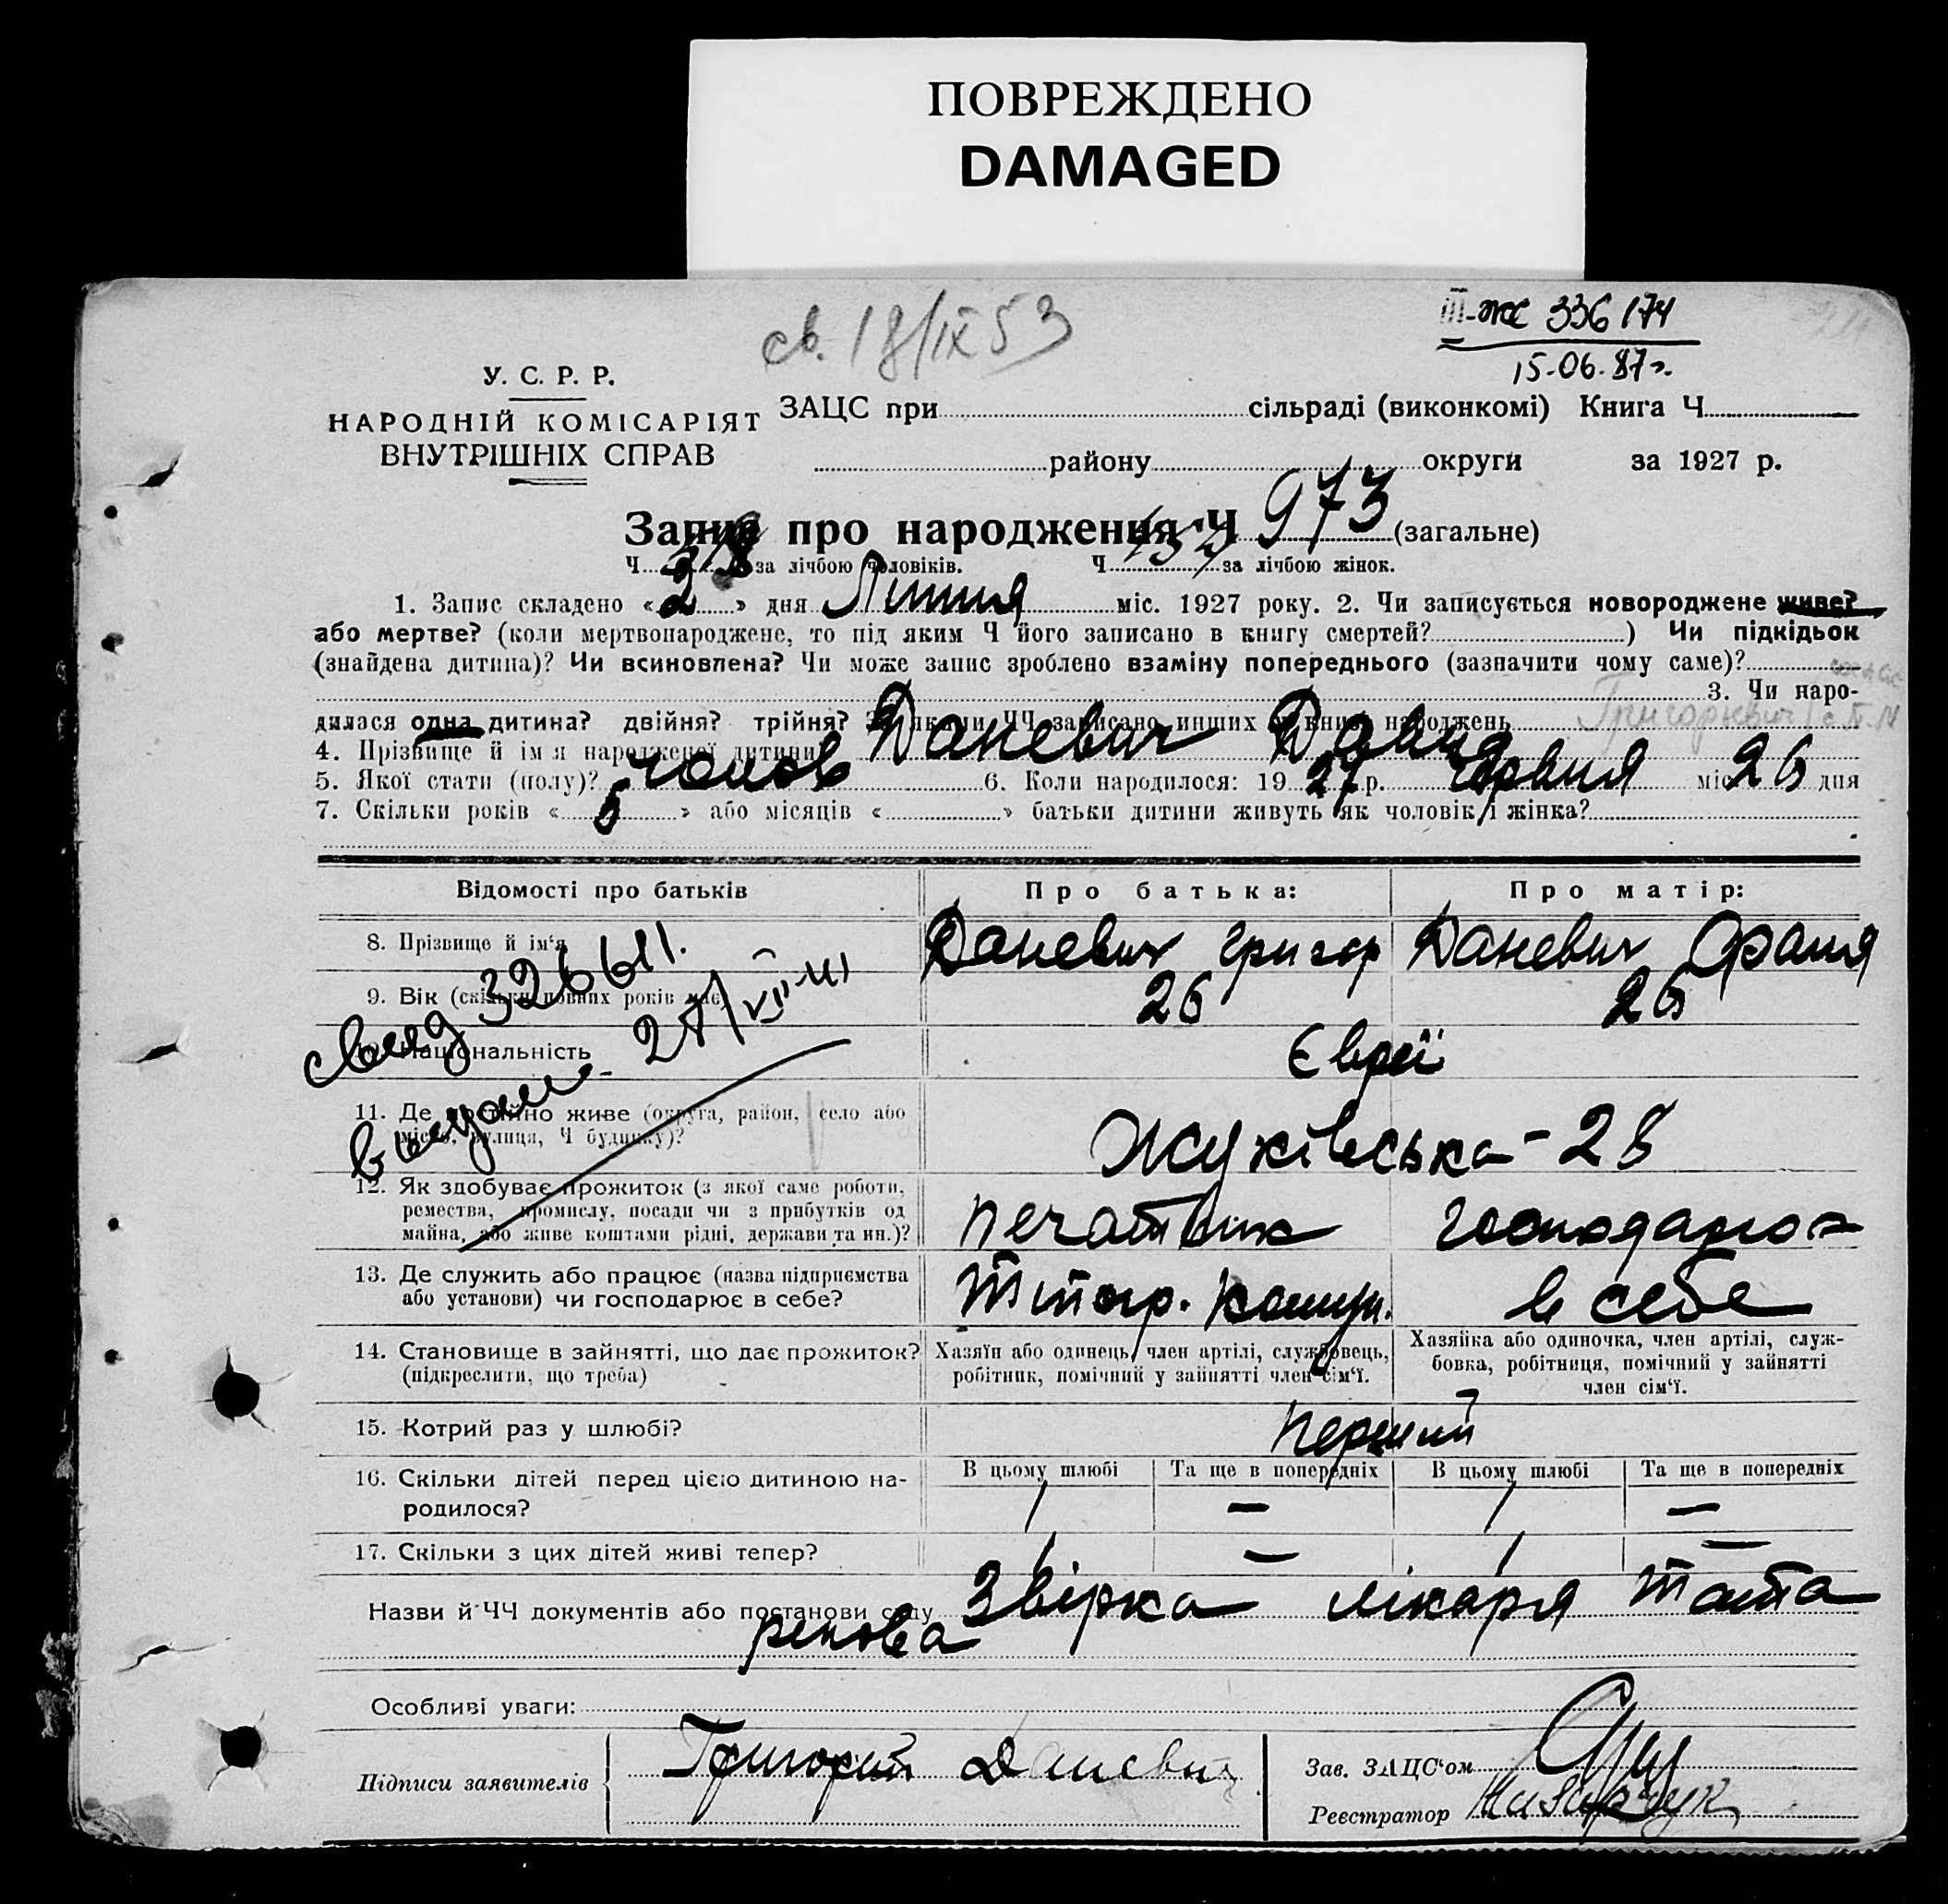 ПОВРЕЖДЕНО
DAMAGED
св. 18/IX 53
III-ЖС 336174
15-06-87г.
У. С. Р. Р.
НАРОДНІЙ КОМІСАРІЯТ
ВНУТРІШНІХ СПРАВ
ЗАЦС при сільраді (виконкомі) Книга Ч.
району округи за 1927 р.
Запис про народження Ч 973 (загальне)
Ч. за лічбою чоловіків. Ч. за лічбою жінок.
1. Запис складено «2» дня Липня міс. 1927 року. 2. Чи записується новороджене живе?
або мертве? (коли мертвонароджене, то під яким Ч його записано в книгу смертей?) Чи підкідьок
(знайдена дитина)? Чи всиновлена? Чи може запис зроблено взаміну попереднього (зазначити чому саме)?
3. Чи наро-
дилася одна дитина? двійня? трійня? За якими ЧЧ записано инших в книзі народжень
Григорієвич
4. Прізвище й ім'я народженої дитини Даневич Давид
5. Якої стати (полу)? чолов 6. Коли народилося: 1927 р. Червня міс. 26 дня
7. Скільки років «5» або місяців « » батьки дитини живуть як чоловік і жінка?
Відомості про батьків Про батька: Про матір:
8. Прізвище й ім'я Даневич Григор Даневич Фаня
9. Вік (скільки повних років має) 26 26
свид 326611.
выдано 27/VII-41
10. Національність Євреї
11. Де постійно живе (округа, район, село або
місто, вулиця, Ч будинку)? Жуківська - 28
12. Як здобуває прожиток (з якої саме роботи,
ремества, промислу, посади чи з прибутків од
майна, або живе коштами рідні, держави та ин.)? печатник господарює
13. Де служить або працює (назва підприємства
або установи) чи господарює в себе? Титогр. Комун. в себе
14. Становище в зайнятті, що дає прожиток?
(підкреслити, що треба)
Хазяїн або одинець, член артілі, службовець,
робітник, помічний у зайнятті член сім'ї.
Хазяйка або одиночка, член артілі, служ-
бовка, робітниця, помічний у зайнятті
член сім'ї.
15. Котрий раз у шлюбі? Перший
16. Скільки дітей перед цією дитиною на-
родилося?
В цьому шлюбі Та ще в попередніх В цьому шлюбі Та ще в попередніх
1 — 1 —
17. Скільки з цих дітей живі тепер? 1 — 1 —
Назви й ЧЧ документів або постанови суду Звірка лікаря Тата
ренова
Особливі уваги:
Підписи заявителів Григорий Даневич
Зав. ЗАЦС'ом
Реєстратор